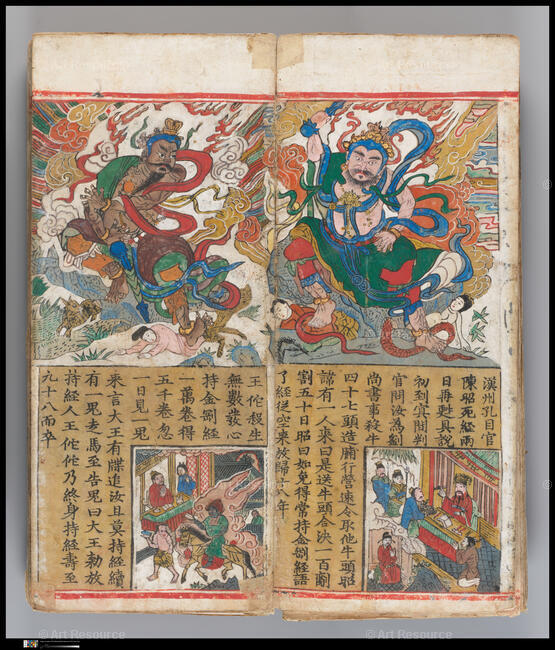 漢州孔目官
陳昭死經兩
日再甦具說
初到冥間判
官問汝為劉
尚書事殺牛
四十七頭造脯行營速令取他牛頭昭
諦有一人來曰是送牛頭合決一百
割五十日昭曰如免得常持金剛經語
了經從空來放歸十八年
王佗殺生
無數發心
持金剛經
一萬卷得
五千卷忽
一日見一鬼
來言大王有牒追汝且莫持經續
有一鬼走馬至告鬼曰大王勅放
持經人王佗佗乃終身持經壽至
九十八而卒
© Art Resource